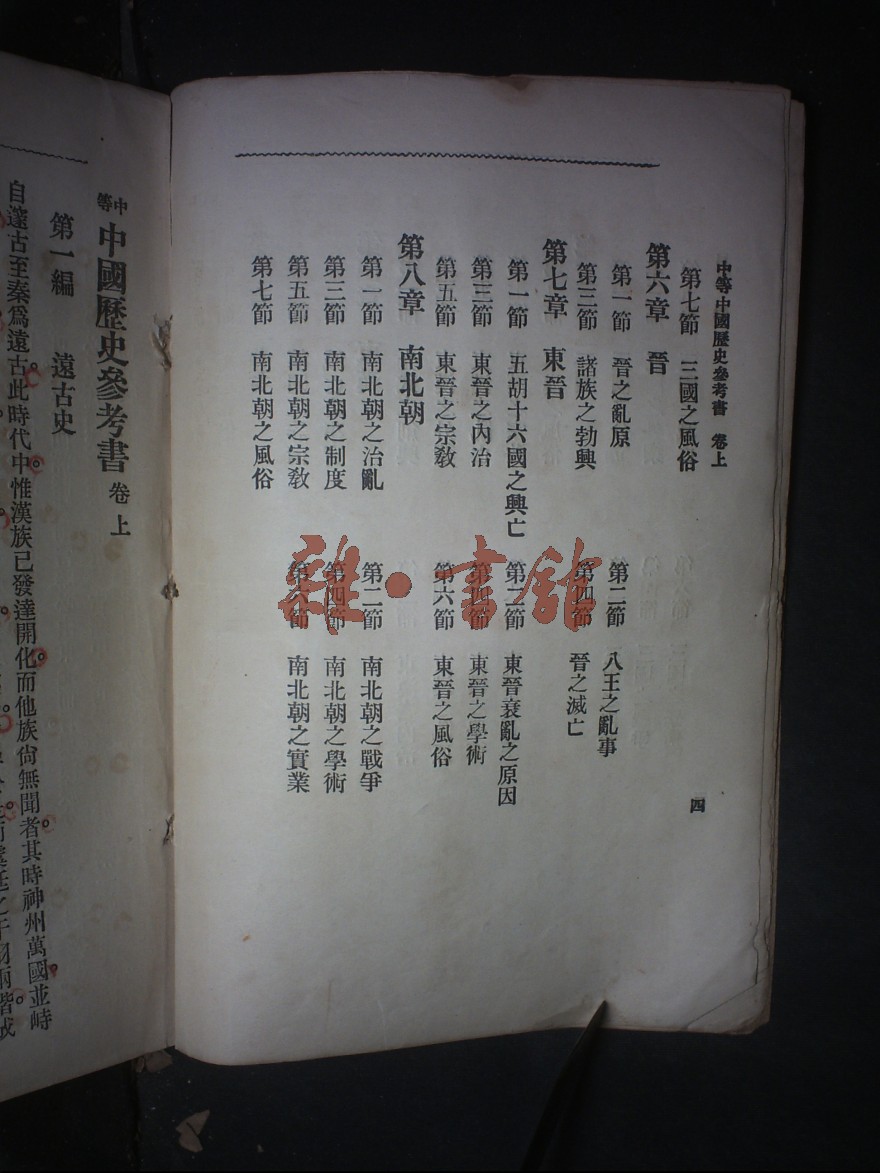 中等中國歷史參考書 卷上
四
第七節 三國之風俗
第六章 晉
第一節 晉之亂原
第二節 八王之亂事
第三節 諸族之勃興
第四節 晉之滅亡
第七章 東晉
第一節 五胡十六國之興亡
第二節 東晉衰亂之原因
第三節 東晉之內治
第四節 東晉之學術
第五節 東晉之宗敎
第六節 東晉之風俗
第八章 南北朝
第一節 南北朝之治亂
第二節 南北朝之戰爭
第三節 南北朝之制度
第四節 南北朝之學術
第五節 南北朝之宗敎
第六節 南北朝之實業
第七節 南北朝之風俗
雜·書館
中等 中國歷史參考書 卷上
第一編 遠古史
自邃古至秦爲遠古此時代中惟漢族已發達開化而他族尙無聞者其時神州萬國並峙